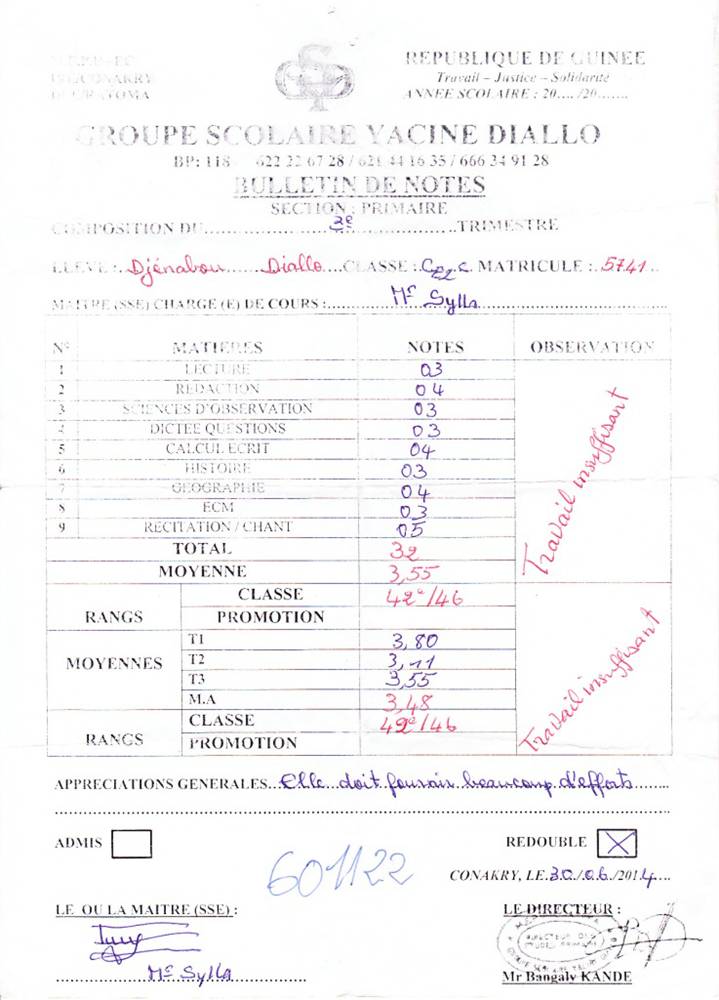 REPUBLIQUE DE GUINEE
Travail – Justice – Solidarité
ANNEE SCOLAIRE : 20..../20.......
GROUPE SCOLAIRE YACINE DIALLO
BP: 118 622 22 67 28 / 621 44 16 35 / 666 34 91 28
BULLETIN DE NOTES
SECTION : PRIMAIRE
COMPOSITION DU 3e TRIMESTRE
ELEVE : Djénabou Diallo CLASSE : MATRICULE : 5741
MAITRE (SSE) CHARGE (E) DE COURS : Mr Sylla
N° MATIERES NOTES OBSERVATION
1 LECTURE 03
2 REDACTION 04
3 SCIENCES D'OBSERVATION 03
4 DICTEE QUESTIONS 03
5 CALCUL ECRIT 04
6 HISTOIRE 03
7 GEOGRAPHIE 04
8 ECM 03
9 RECITATION / CHANT 05
Travail insuffisant
TOTAL 32
MOYENNE 3,55
RANGS CLASSE 42e/46
PROMOTION
MOYENNES T1 3,80
T2 3,11
T3 3,55
M.A 3,48
RANGS CLASSE 42e/46
PROMOTION
Travail insuffisant
APPRECIATIONS GENERALES Elle doit fournir beaucoup d'efforts
ADMIS REDOUBLE X
601122
CONAKRY, LE 30/06/2014
LE OU LA MAITRE (SSE) : LE DIRECTEUR :
Mr Sylla
Mr Bangaly KANDE